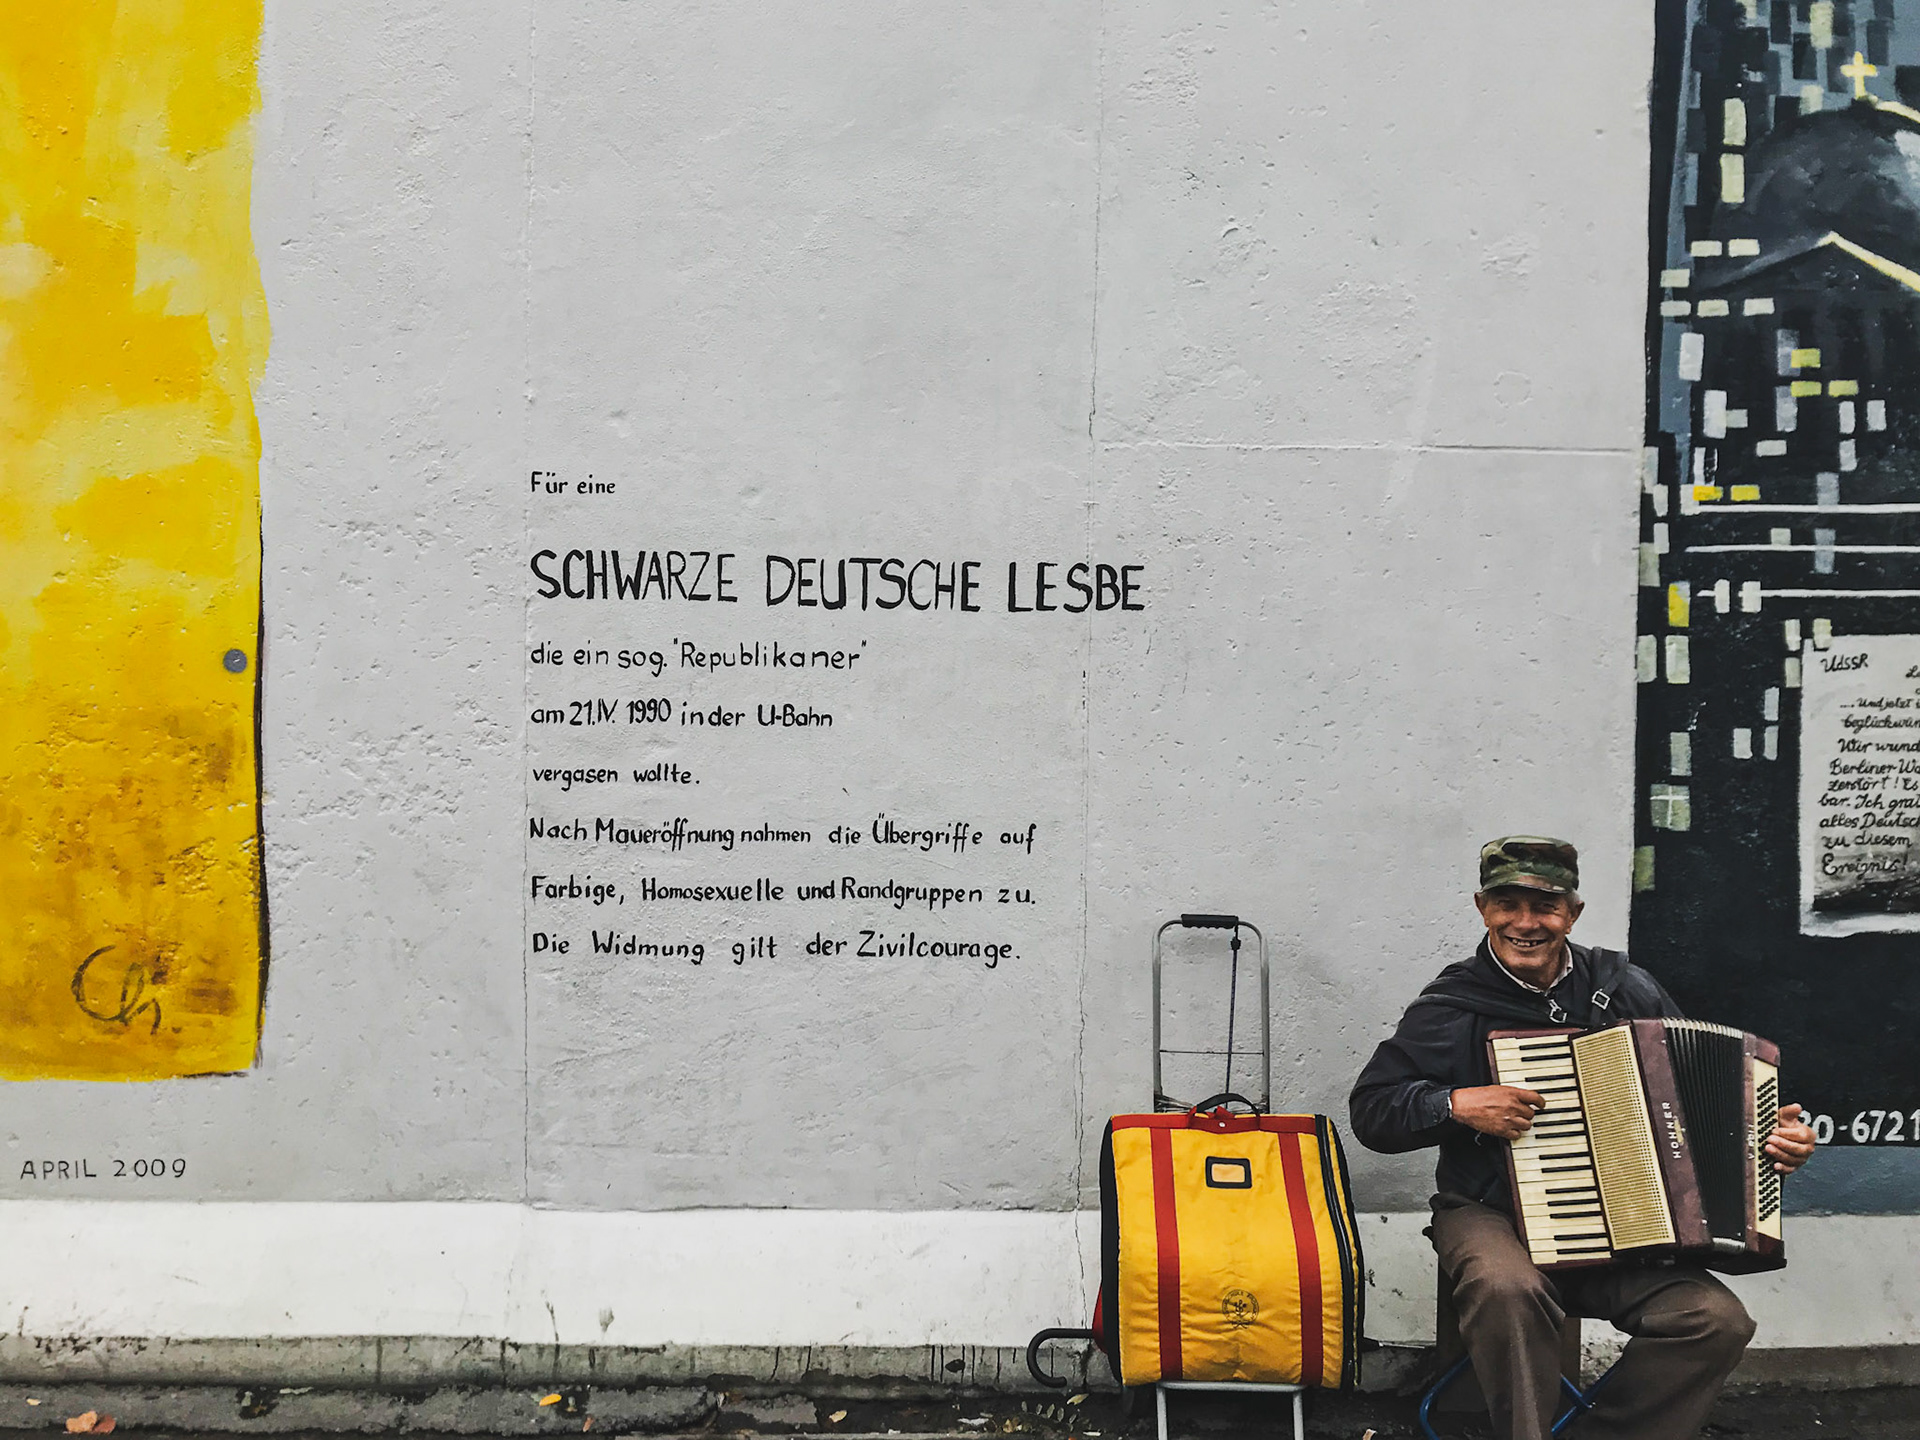 Für eine
SCHWARZE DEUTSCHE LESBE
die ein sog. "Republikaner"
am 21.IV. 1990 in der U-Bahn
vergasen wollte.
Nach Maueröffnung nahmen die Übergriffe auf
Farbige, Homosexuelle und Randgruppen zu.
Die Widmung gilt der Zivilcourage.
APRIL 2009
UdSSR
.... Und jetzt
beglückwün
Wir wund
Berliner-Wa
zerstört! Es
bar. Ich grat
alles Deutsch
zu diesem
Ereignis!
20-6721
HOHNER